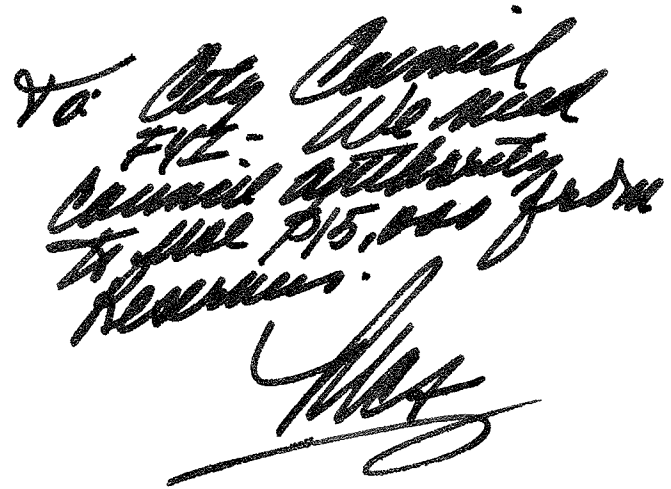 To: City Council
FYI - We need
Council authority
to use $15,000 from
Reserves.
Max